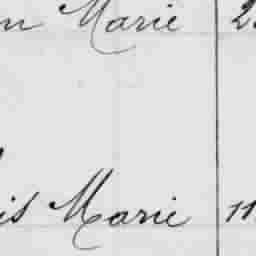 n Marie 2
is Marie 11